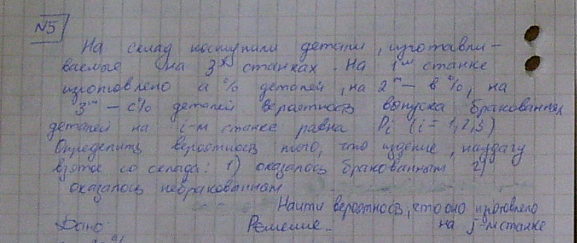 №5
На склад поступили детали, изготавли-
ваемые на 3х станках. На 1м станке
изготовлено a% деталей, на 2м - b%, на
3м - c% деталей вероятность выпуска бракованных
деталей на i-м станке равна Pi (i = 1,2,3)
Определить вероятность того, что изделие, наудачу
взятое со склада: 1) оказалось бракованным 2)
оказалось небракованным
Найти вероятность, что оно изготовлено
Дано Решение на j-м станке